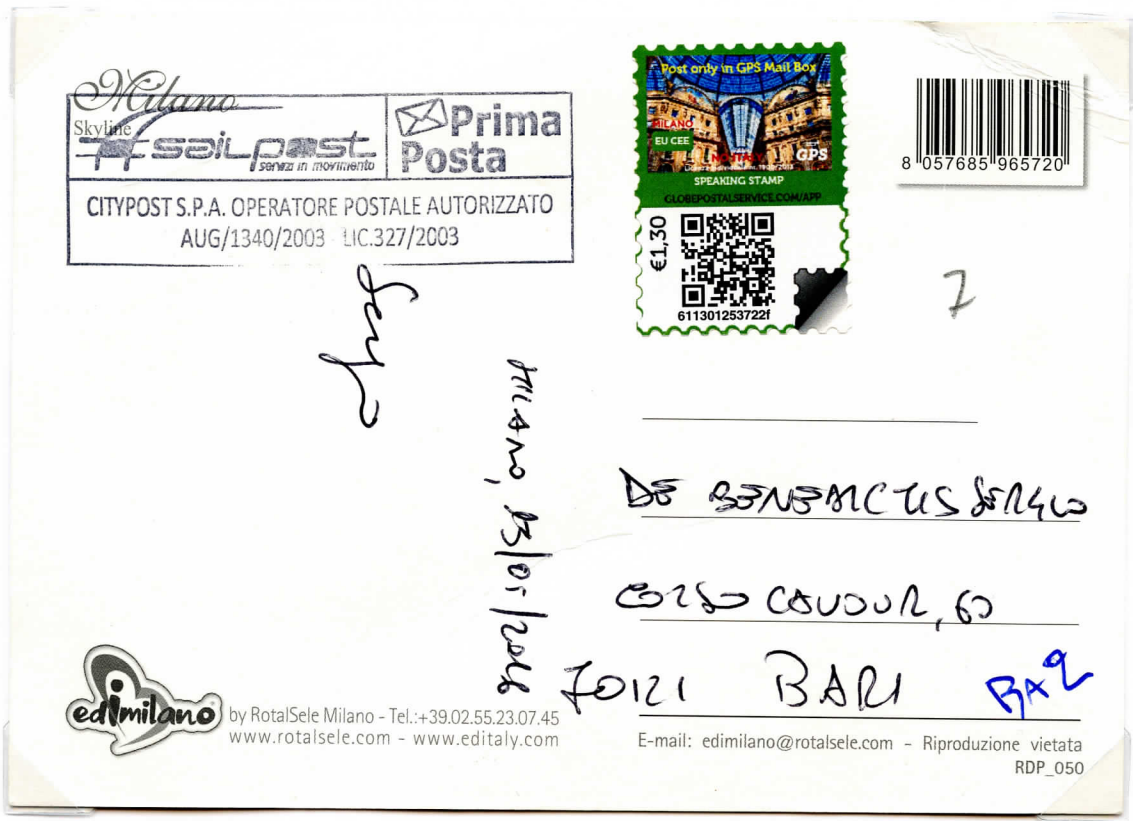 Milano
Skyline
sailpost
servizi in movimento
Prima
Posta
CITYPOST S.P.A. OPERATORE POSTALE AUTORIZZATO
AUG/1340/2003 LIC.327/2003
Post only in GPS Mail Box
MILANO
EU CEE
NO ITALY
GPS
SPEAKING STAMP
GLOBEPOSTALSERVICE.COM/APP
€1,30
611301253722f
8 057685 965720
7
MILANO,
DE BENEDICTIS SERGIO
CORSO CAVOUR, 60
70121 BARI
BA2
edimilano
by RotalSele Milano - Tel.:+39.02.55.23.07.45
www.rotalsele.com - www.editaly.com
E-mail: edimilano@rotalsele.com - Riproduzione vietata
RDP_050